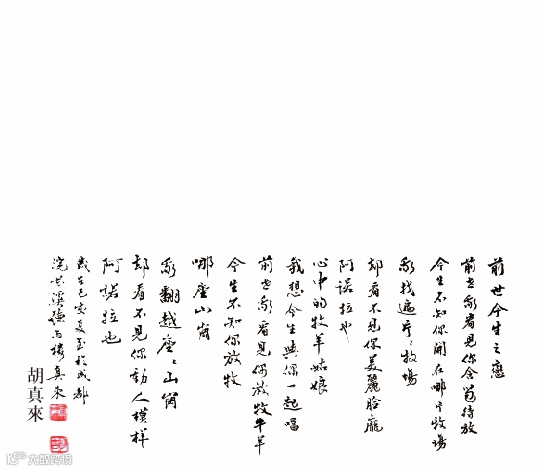 前世今生之戀
前世我看見你含苞待放
今生不知你開在哪个牧場
我找遍片片牧場
却看不見你美麗臉龐
阿諾拉也
心中的牧羊姑娘
我想今生與你一起唱
前世我看見你放牧牛羊
今生不知你放牧
哪座山崗
我翻越座座山崗
却看不見你動人模样
阿諾拉也
歲在己亥夏至於成都
浣花溪 真來
胡真來
大數跨境